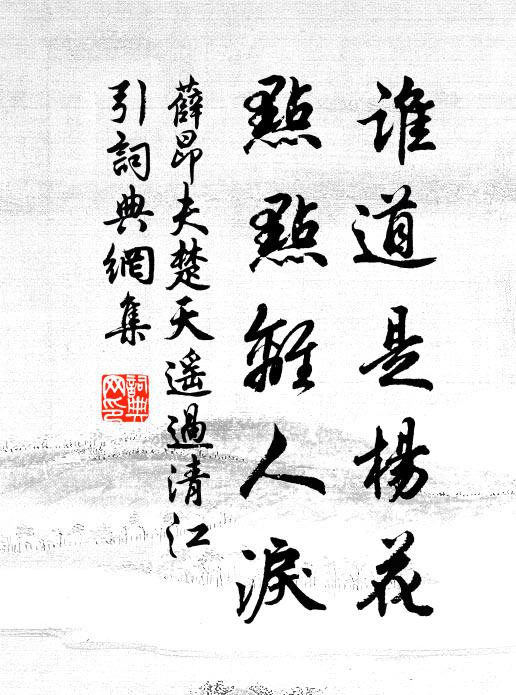 誰道是楊花
點點離人淚
薛昂夫楚天遥過清江
引詞典網集
詞典
网印